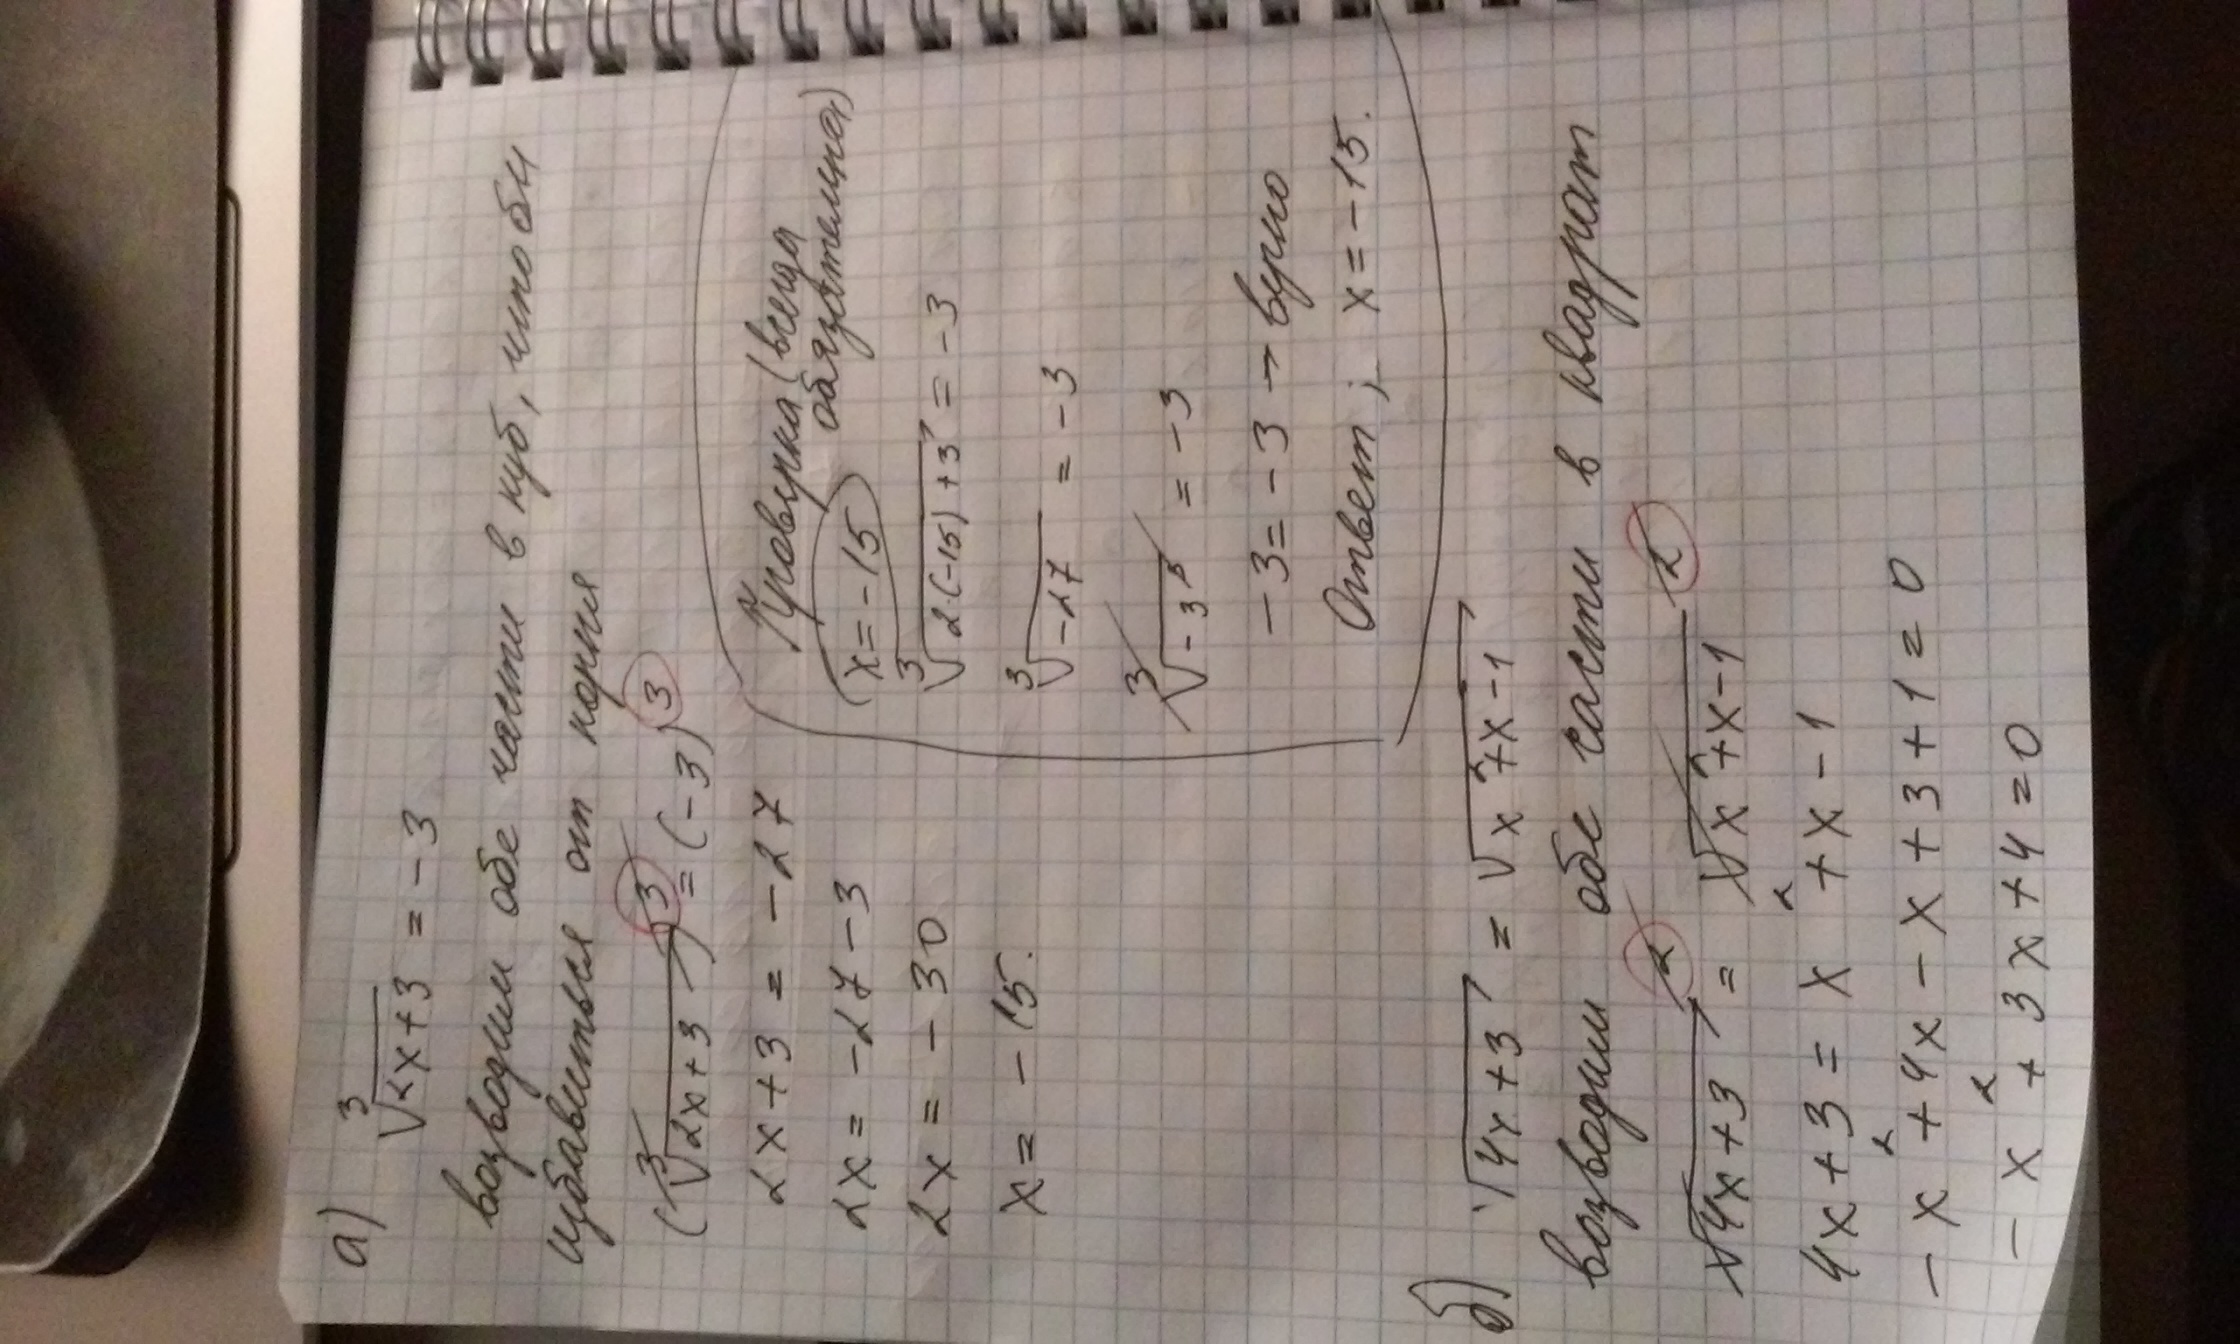 а) ³√2x+3 = -3
возводим обе части в куб, чтобы
избавиться от корня
(³√2x+3)³ = (-3)³
2x+3 = -27
2x = -27-3
2x = -30
x = -15.
Проверка (всегда
обязательна)
x = -15
³√2·(-15)+3 = -3
³√-27 = -3
³√-3³ = -3
-3 = -3 → верно
Ответ; x = -15.
б) √4x+3 = √x²+x-1
возводим обе части в квадрат
√4x+3² = √x²+x-1²
4x+3 = x²+x-1
-x²+4x-x+3+1=0
-x²+3x+4=0